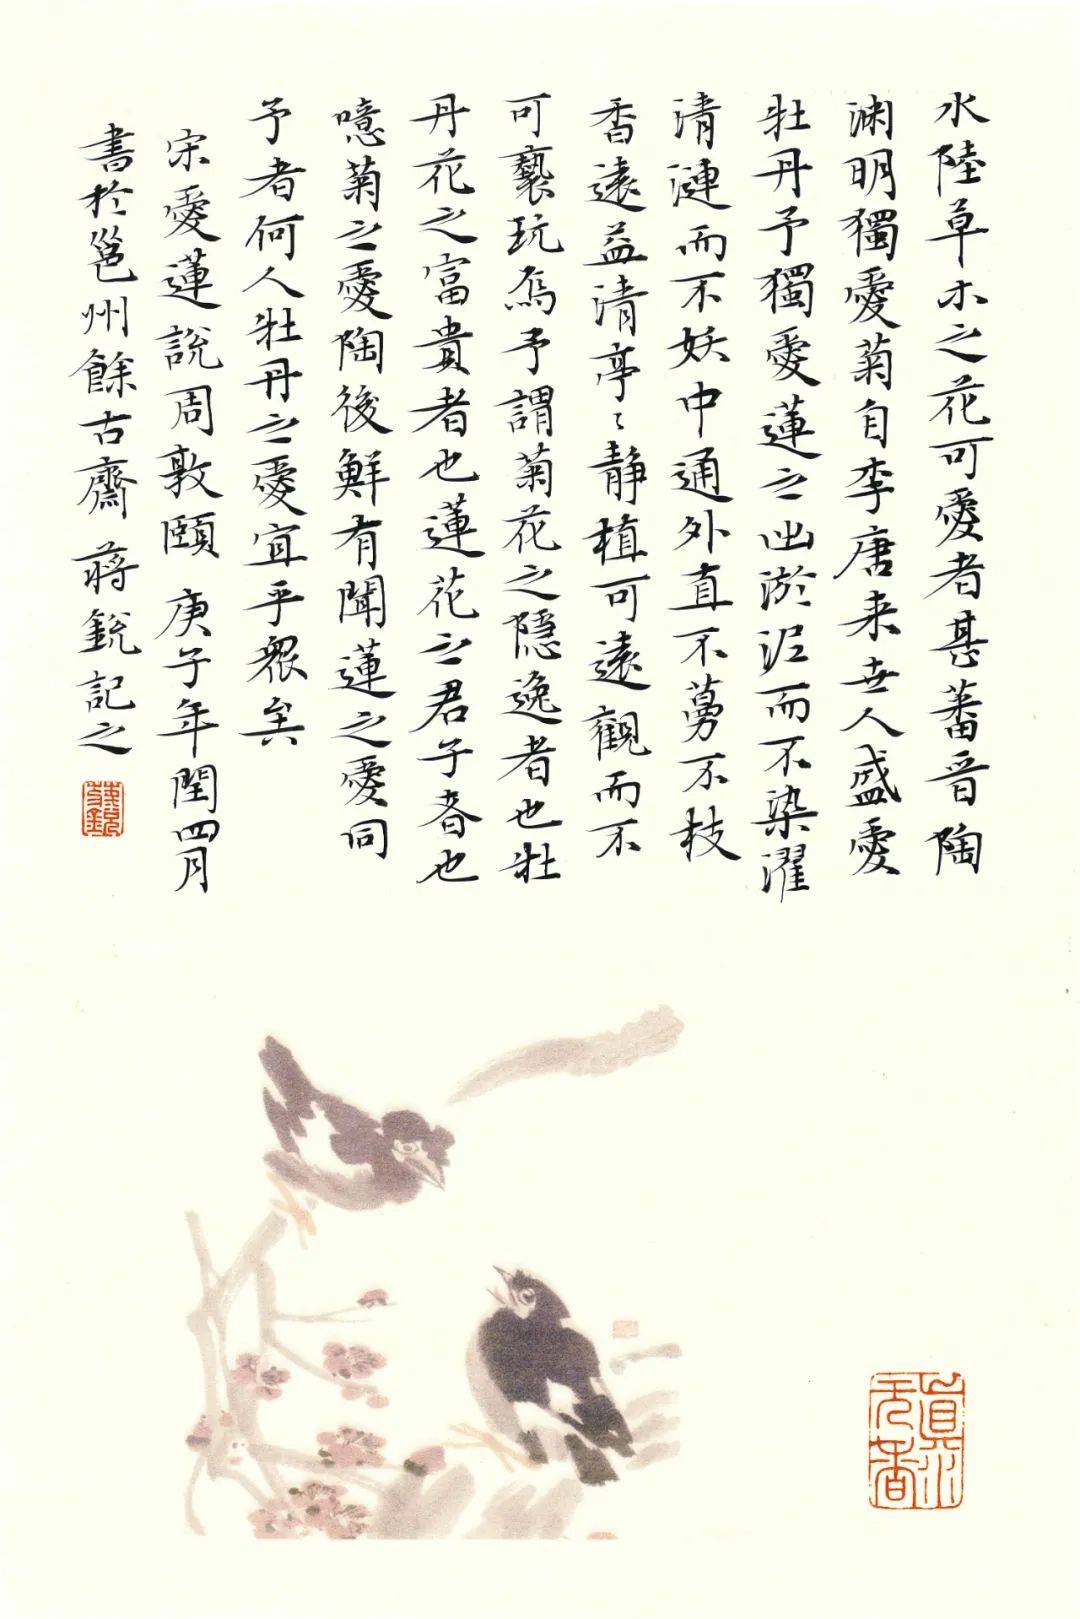 水陸草木之花可愛者甚蕃晉陶
渊明獨愛菊自李唐来世人盛愛
牡丹予獨愛蓮之出淤泥而不染濯
清漣而不妖中通外直不蔓不枝
香遠益清亭〻静植可遠觀而不
可褻玩焉予謂菊花之隱逸者也牡
丹花之富貴者也蓮花之君子者也
噫菊之愛陶後鮮有聞蓮之愛同
予者何人牡丹之愛宜乎衆矣
宋愛蓮說周敦頤 庚子年閏四月
書於邕州餘古齋 蔣銳記之
真水无香